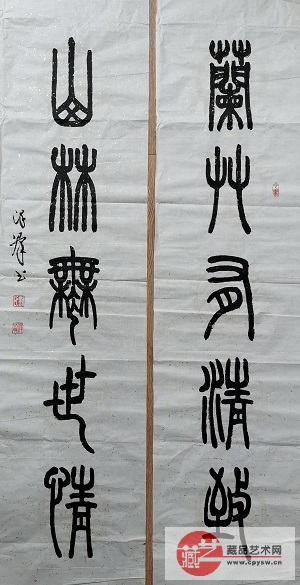 蘭艸有清致
山林無世情
书
藏品艺术网
www.cpysw.cn